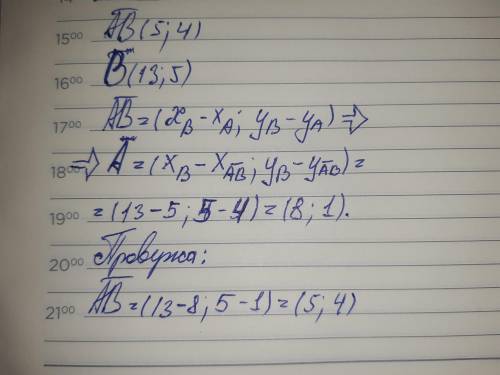 15⁰⁰ A̅B̅(5; 4)
16⁰⁰ B(13; 5)
17⁰⁰ A̅B̅ = (x_B - x_A; y_B - y_A) ⇒
18⁰⁰ ⇒ A = (x_B - x_A̅B̅; y_B - y_A̅B̅) =
19⁰⁰ = (13 - 5; 5 - 4) = (8; 1).
20⁰⁰ Проверка:
21⁰⁰ A̅B̅ = (13 - 8; 5 - 1) = (5; 4)